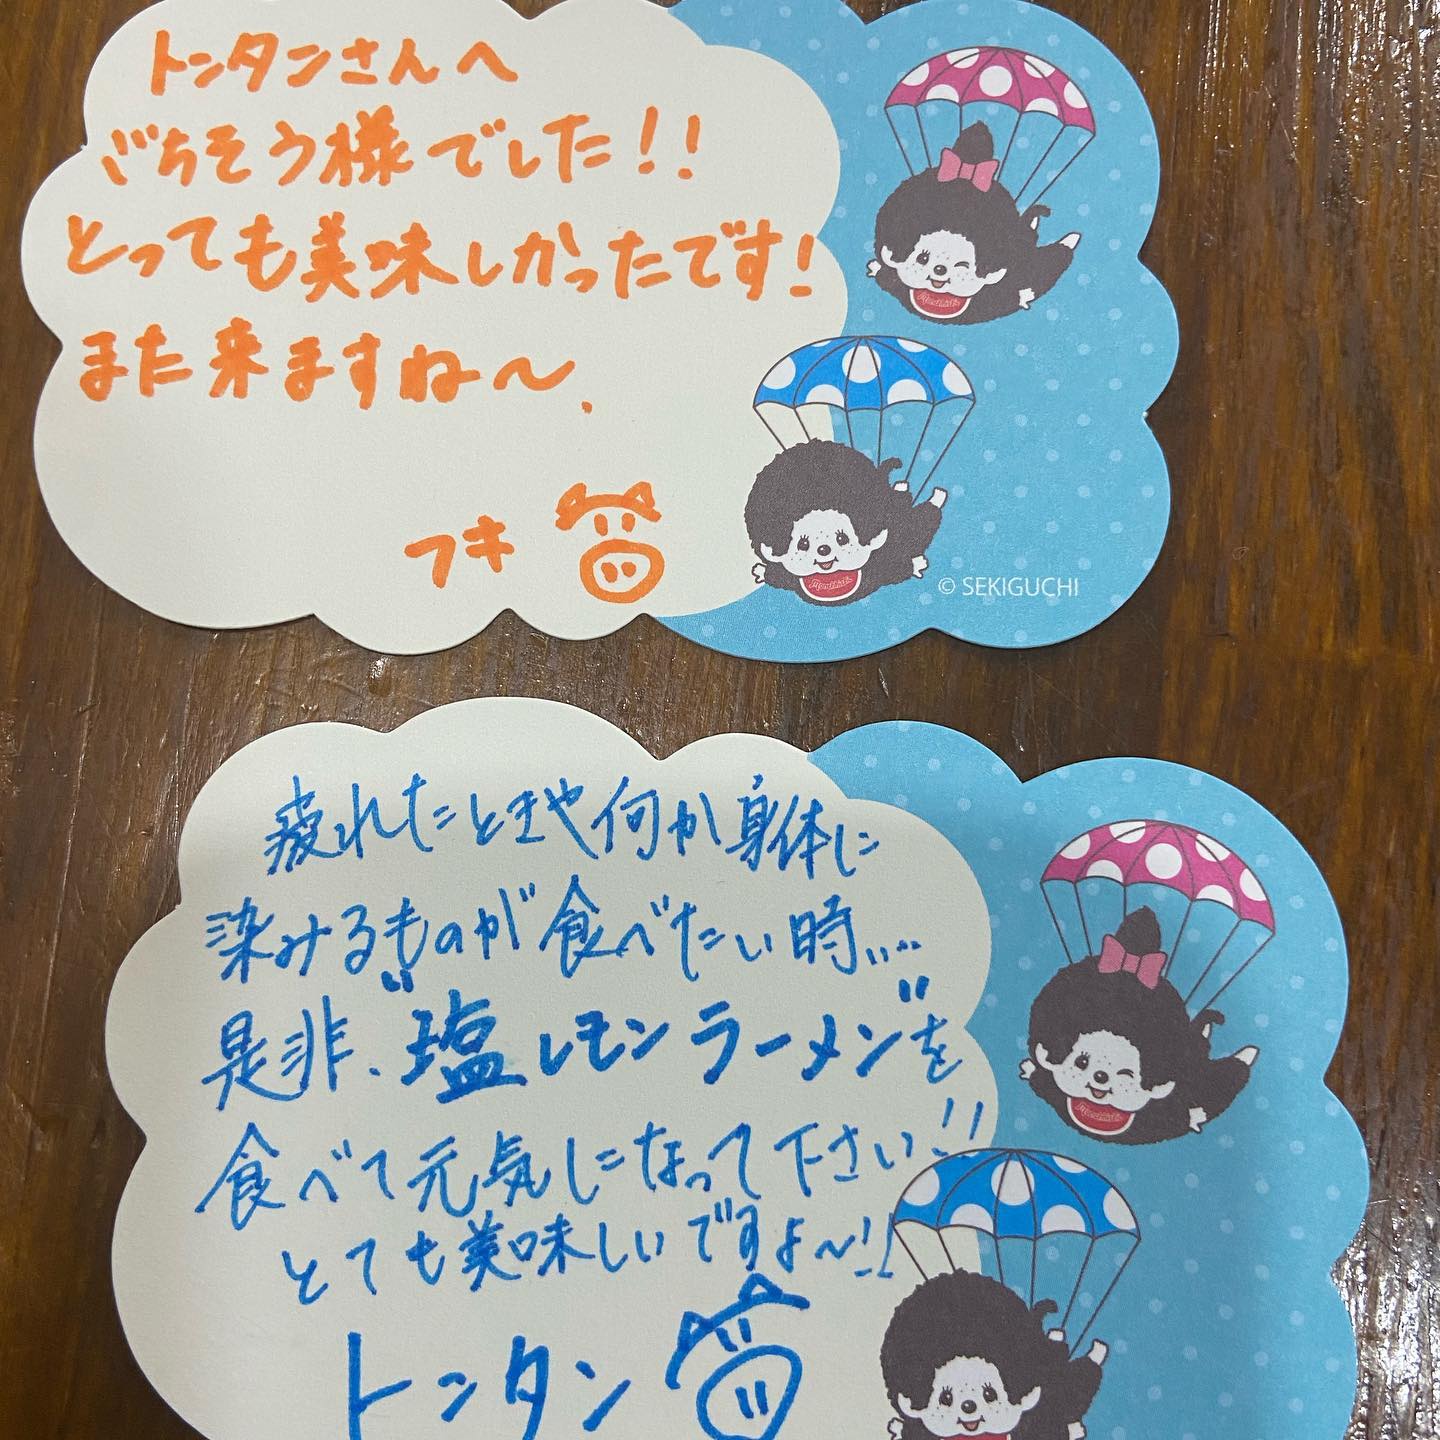 トンタンさんへ
ごちそう様でした!!
とっても美味しかったです!
また来ますね〜.
フキ
© SEKIGUCHI
疲れたときや何か身体に
染みるものが食べたい時....
是非、"塩レモンラーメン"を
食べて元気になって下さい!!
とても美味しいですよ〜!!
トンタン